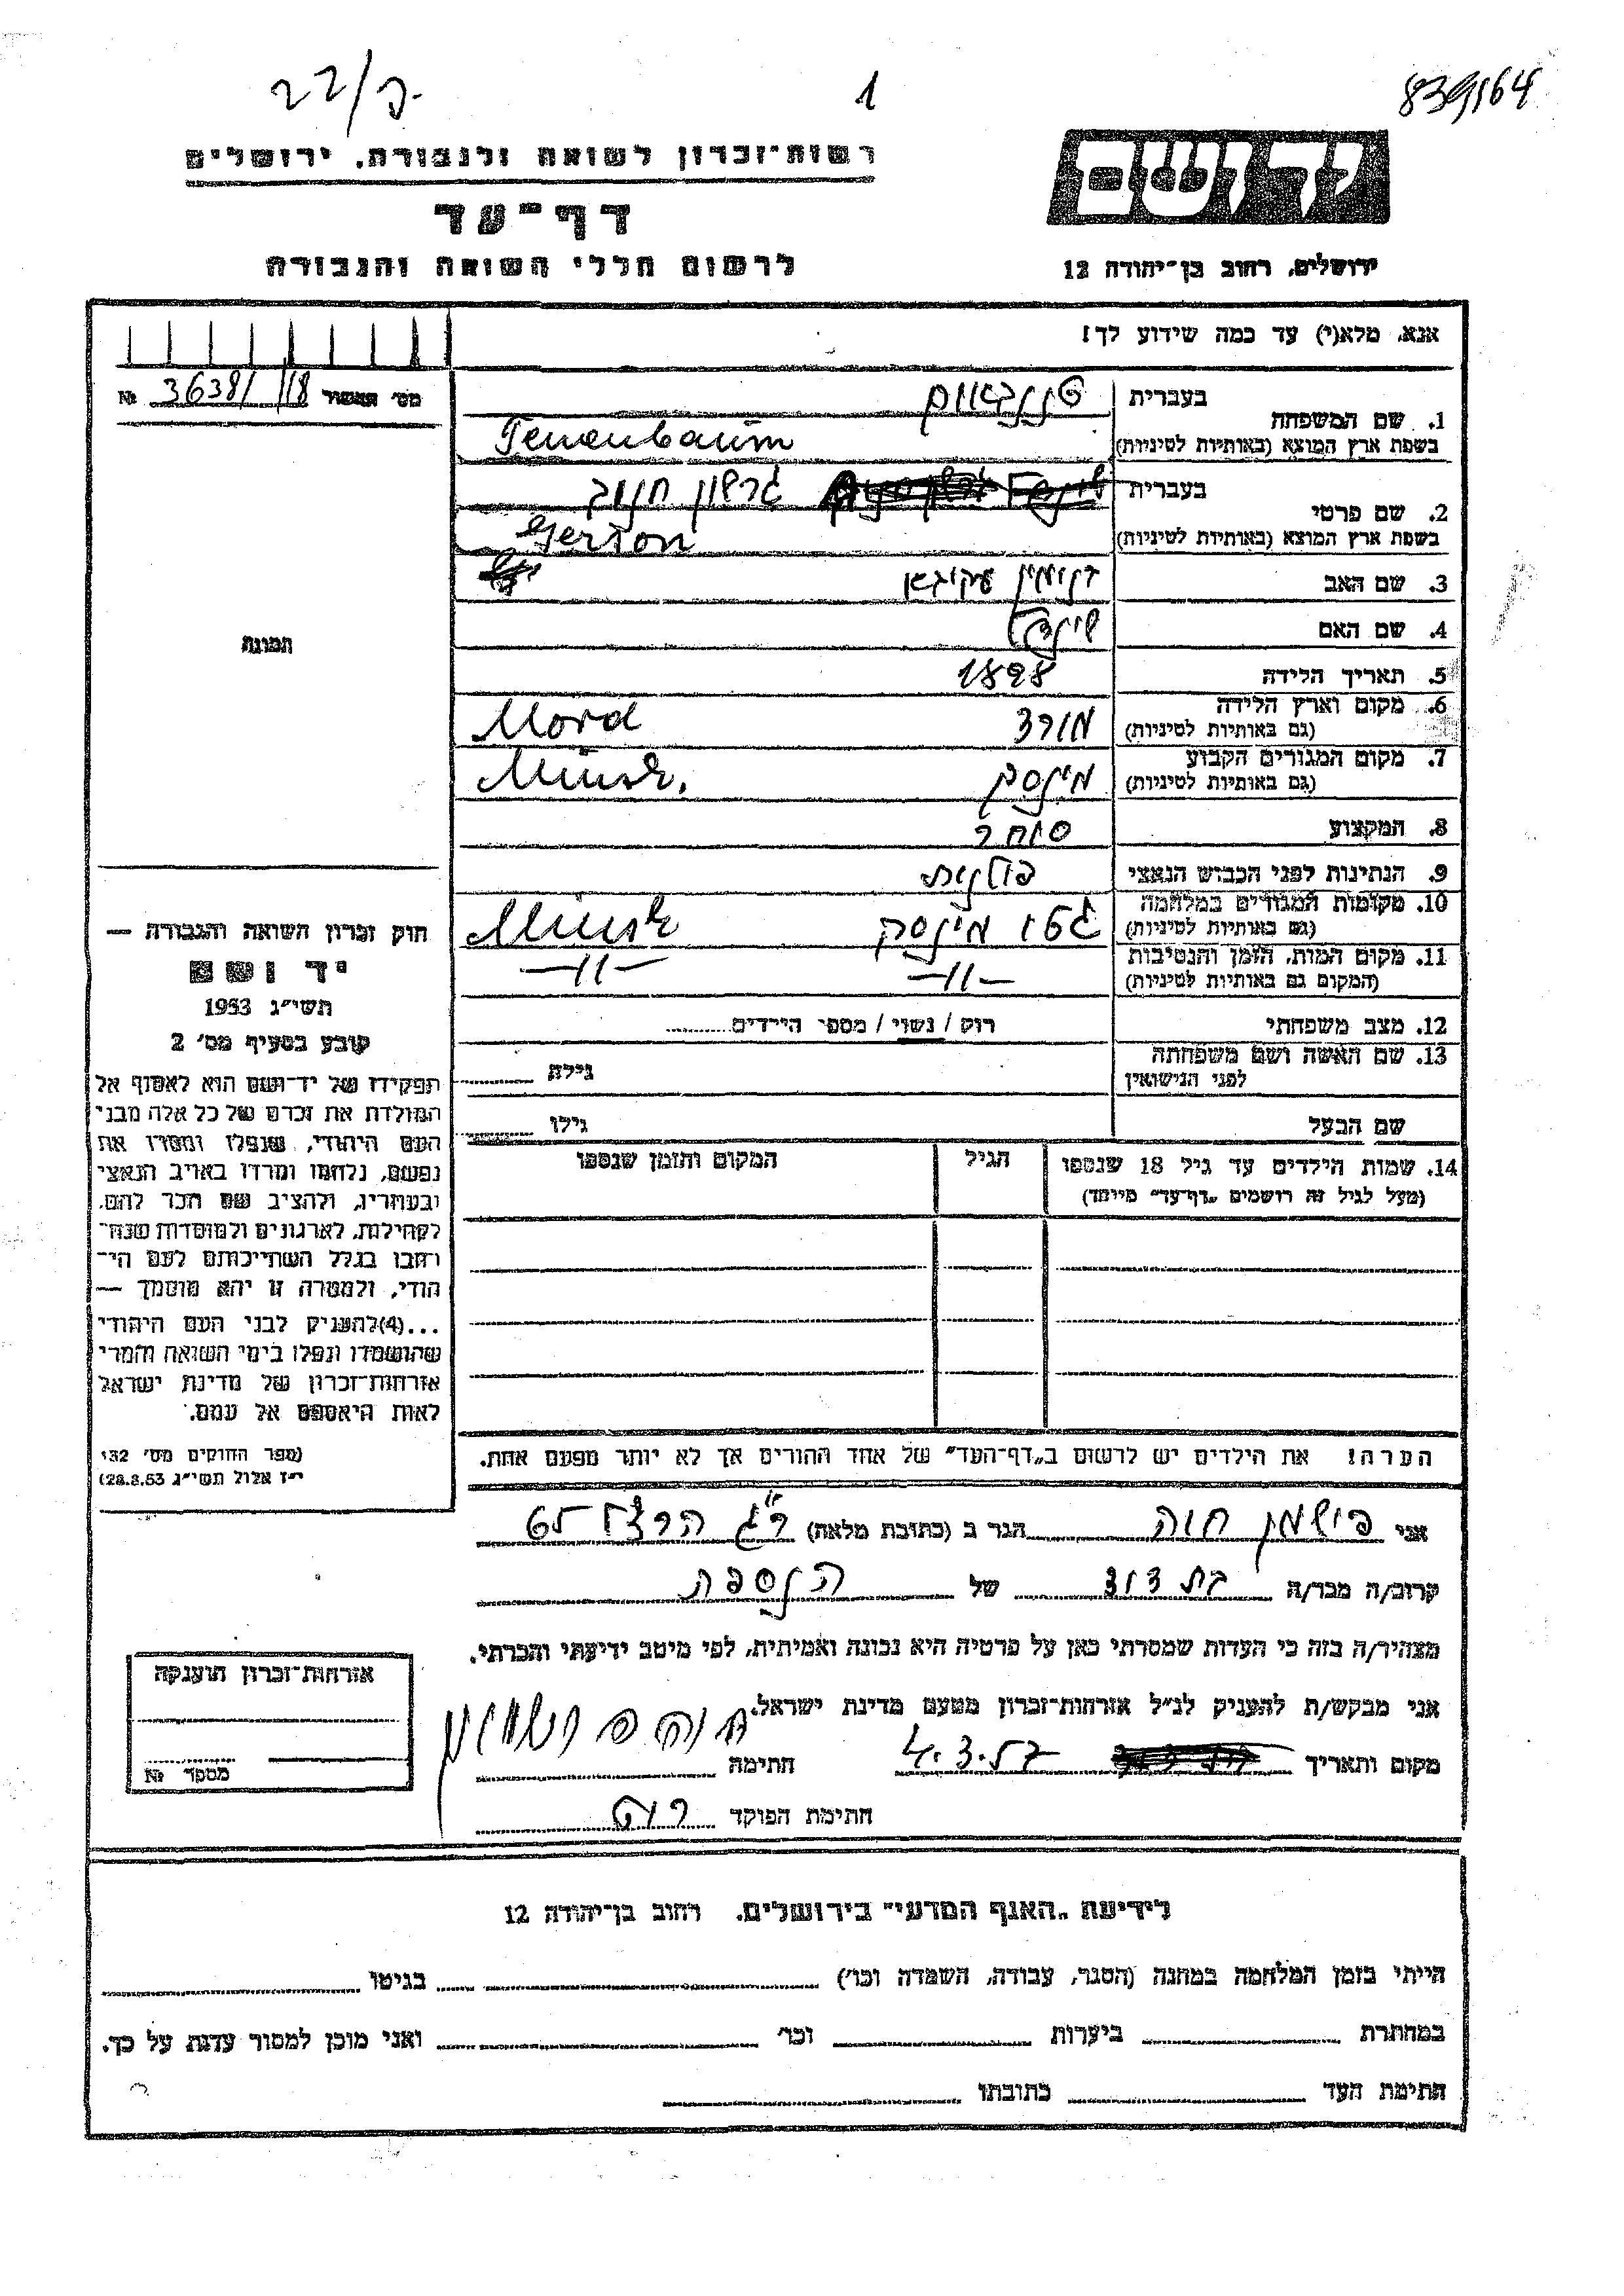 22/כ.
1
839164
רשות־זכרון לשואה ולגבורה, ירושלים
דף־עד
לרשום חללי השואה והגבורה
יד ושם
ירושלים, רחוב בן־יהודה 12
אנא, מלא(י) עד כמה שידוע לך!
№ 36381/118
1. שם המשפחה
בעברית טננבאום
בשפת ארץ המוצא (באותיות לטיניות) Tenenbaum
2. שם פרטי
בעברית גרשון חנוך
בשפת ארץ המוצא (באותיות לטיניות) Gerson
3. שם האב
4. שם האם
5. תאריך הלידה 1898
6. מקום וארץ הלידה
(גם באותיות לטיניות) מורד Mord
7. מקום המגורים הקבוע
(גם באותיות לטיניות) מינסק Minsk.
8. המקצוע סוחר
9. הנתינות לפני הכבוש הנאצי פולנית
10. מקומות המגורים במלחמה
(גם באותיות לטיניות) גטו מינסק Minsk
11. מקום המות, הזמן והנסיבות
(המקום גם באותיות לטיניות) —״— —״—
12. מצב משפחתי רוק / נשוי / מספר הילדים
13. שם האשה ושם משפחתה
לפני הנישואין גילה
שם הבעל גילו
14. שמות הילדים עד גיל 18 שנספו הגיל המקום והזמן שנספו
(מעל לגיל זה רושמים „דף־עד״ מיוחד)
הערה! את הילדים יש לרשום ב„דף־העד״ של אחד ההורים אך לא יותר מפעם אחת.
תמונה
חוק זכרון השואה והגבורה —
יד ושם
תשי״ג 1953
קובע בסעיף מס׳ 2
תפקידו של יד־ושם הוא לאסוף אל
המולדת את זכרם של כל אלה מבני
העם היהודי, שנפלו ומסרו את
נפשם, נלחמו ומרדו באויב הנאצי
ובעוזריו, ולהציב שם וזכר להם,
לקהילות, לארגונים ולמוסדות שנח־
רבו בגלל השתייכותם לעם הי־
הודי, ולמטרה זו יהא מוסמך —
...(4)להעניק לבני העם היהודי
שהושמדו ונפלו בימי השואה והמרי
אזרחות־זכרון של מדינת ישראל
לאות היאספם אל עמם.
(ספר החוקים מס׳ 132
י״ז אלול תשי״ג 28.8.53)
אני פישמן חוה הגר ב (כתובת מלאה) ר״ג הרצל 65
קרוב/ה מכר/ה בת דוד של הנספה
מצהיר/ה בזה כי העדות שמסרתי כאן על פרטיה היא נכונה ואמיתית, לפי מיטב ידיעתי והכרתי.
אני מבקש/ת להעניק לנ״ל אזרחות־זכרון מטעם מדינת ישראל.
מקום ותאריך 4.3.57 חתימה חוה פישמן
חתימת הפוקד
אזרחות־זכרון הוענקה
מספר №
לידיעת „האגף המדעי״ בירושלים, רחוב בן־יהודה 12
הייתי בזמן המלחמה במחנה (הסגר, עבודה, השמדה וכו׳) בגיטו
במחתרת ביערות וכו׳ ואני מוכן למסור עדות על כך.
חתימת העד כתובתו